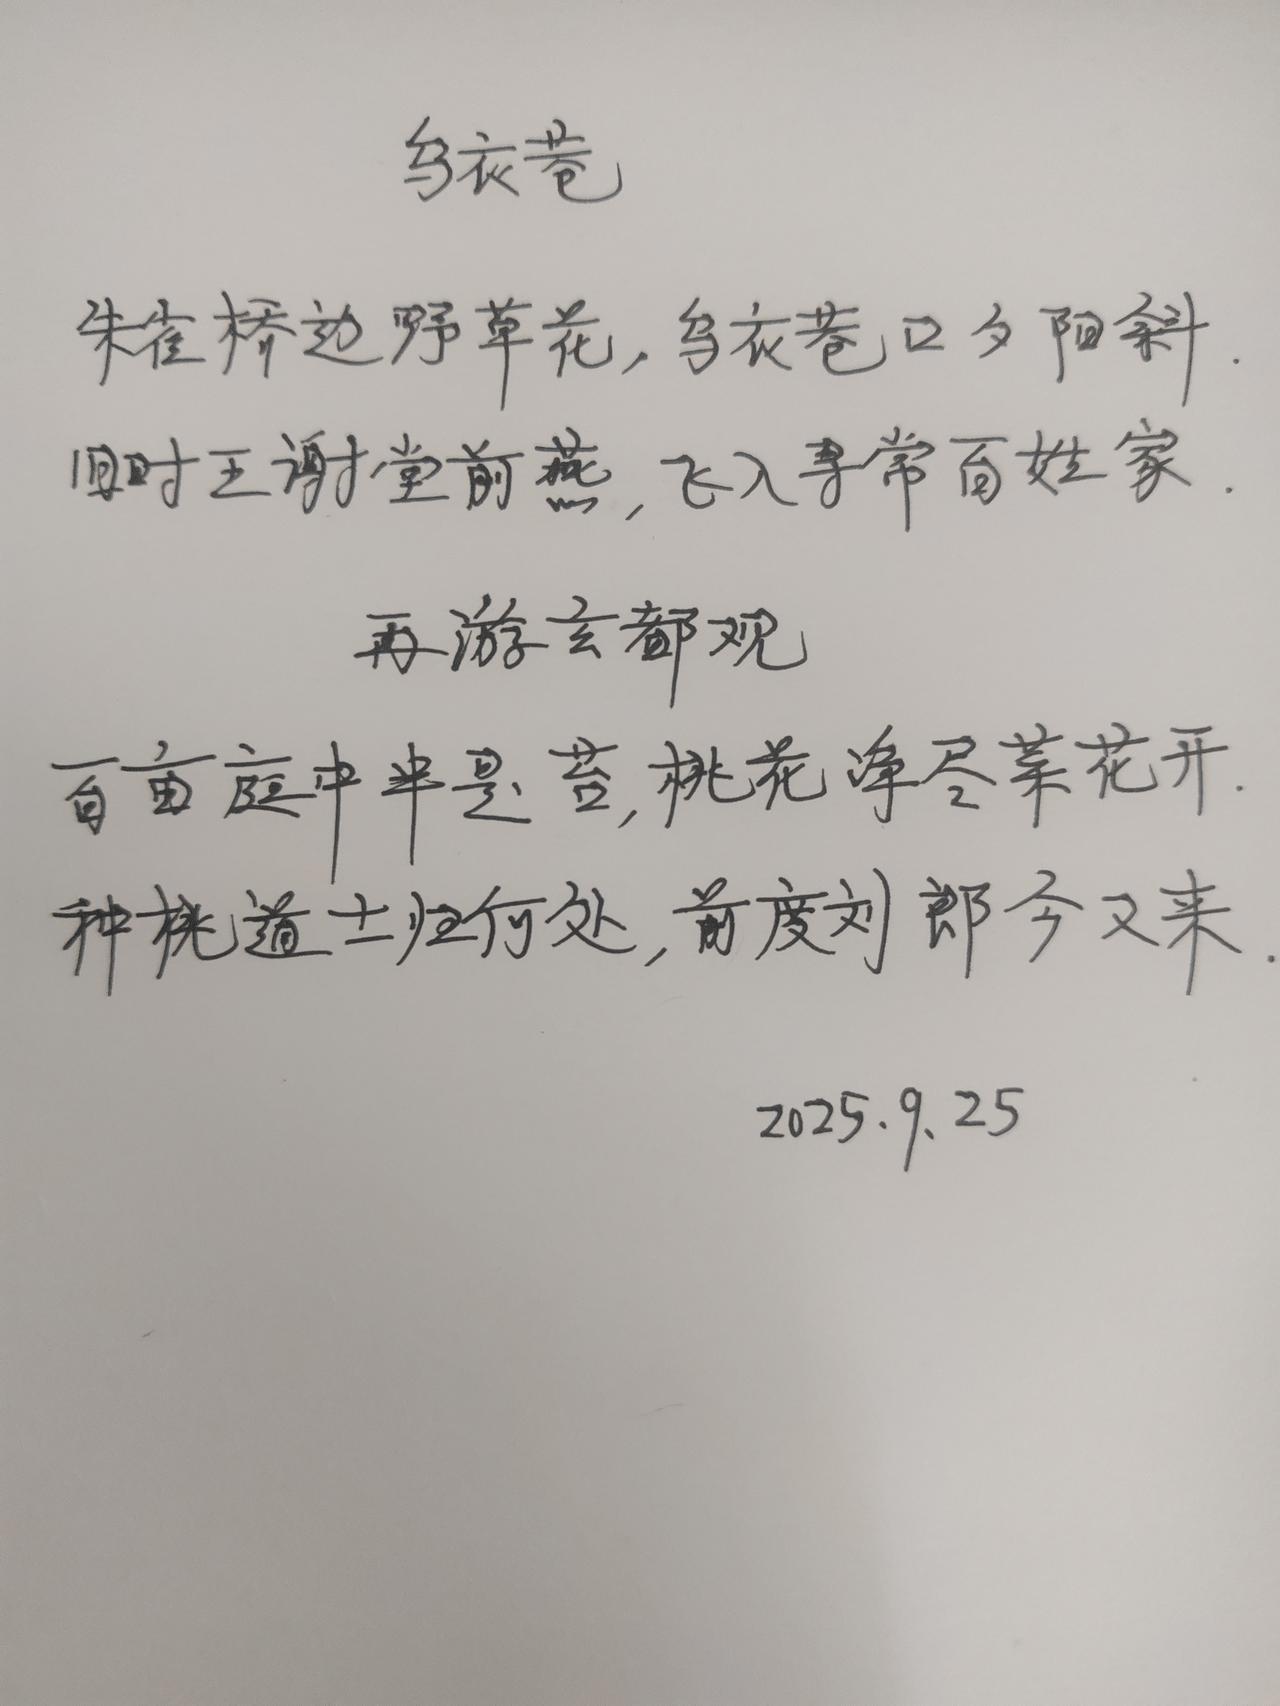 乌衣巷
朱雀桥边野草花,乌衣巷口夕阳斜.
旧时王谢堂前燕,飞入寻常百姓家.
再游玄都观
百亩庭中半是苔,桃花净尽菜花开.
种桃道士归何处,前度刘郎今又来.
2025.9.25